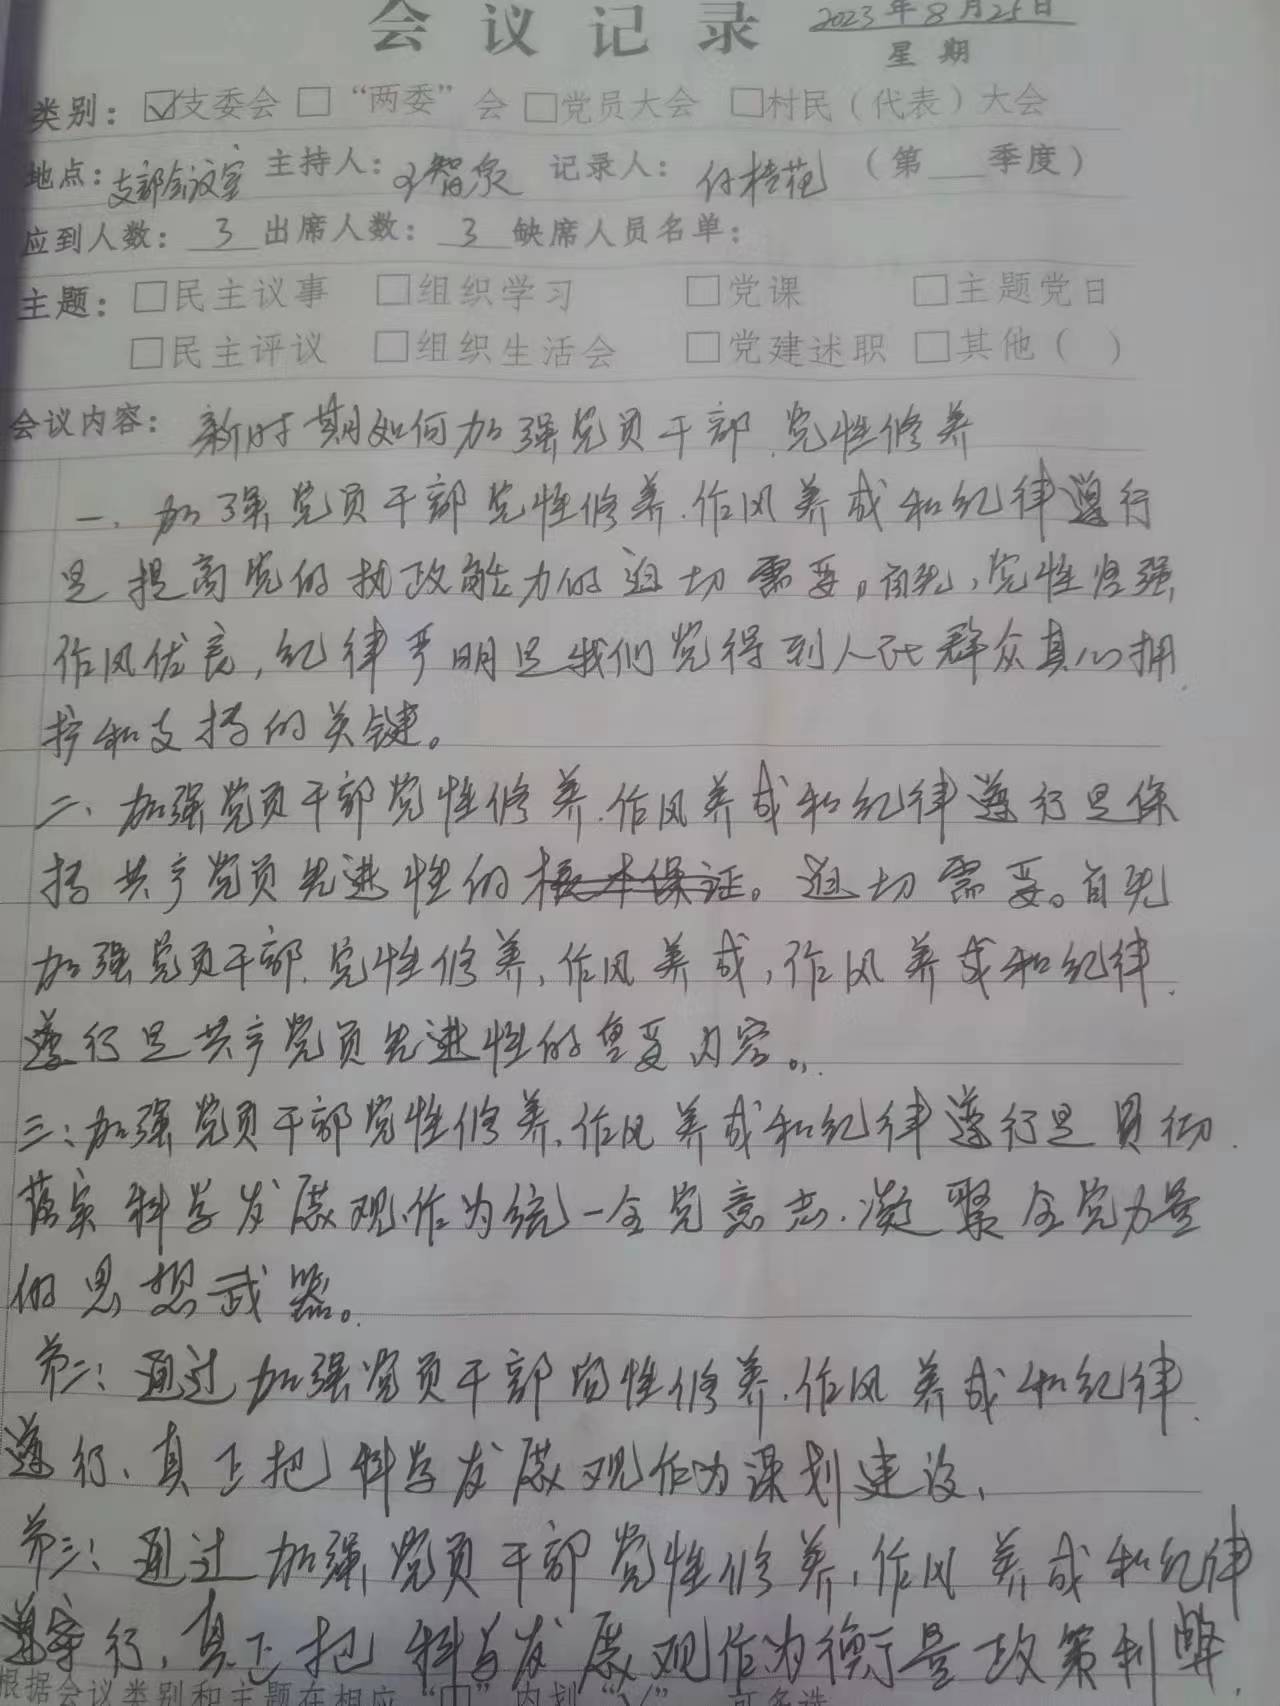 会议记录 2023年8月25日
星期
类别：☑支委会 □“两委”会 □党员大会 □村民（代表）大会
地点：支部会议室 主持人：智泉 记录人：付桂花 （第___季度）
应到人数：3 出席人数：3 缺席人员名单：
主题：□民主议事 □组织学习 □党课 □主题党日
□民主评议 □组织生活会 □党建述职 □其他（ ）
会议内容：新时期如何加强党员干部、党性修养
一、加强党员干部党性修养、作风养成和纪律遵行
是提高党的执政能力的迫切需要。首先，党性坚强
作风优良，纪律严明是我们党得到人民群众真心拥
护和支持的关键。
二、加强党员干部党性修养、作风养成和纪律遵行是保
持共产党员先进性的根本保证。迫切需要。首先
加强党员干部、党性修养，作风养成，作风养成和纪律
遵行是共产党员先进性的重要内容。
三：加强党员干部党性修养、作风养成和纪律遵行是贯彻
落实科学发展观、作为统一全党意志、凝聚全党力量
的思想武器。
第二：通过加强党员干部党性修养、作风养成和纪律
遵行、真正把科学发展观作为谋划建设、
第三：通过加强党员干部党性修养、作风养成和纪律
遵守行，真正把科学发展观作为衡量政策利弊
根据会议类别和主题在相应“口”内划“√”，可多选